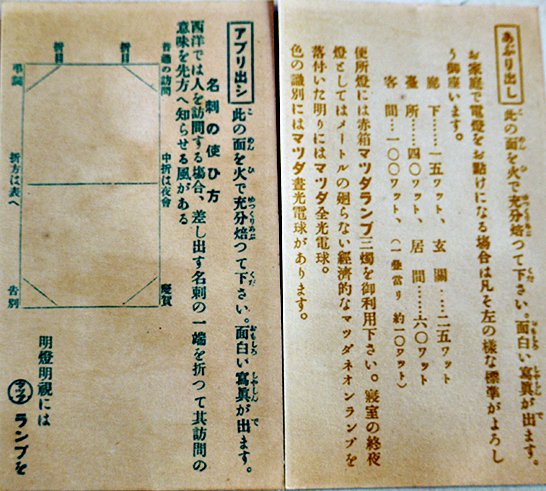 あぶり出し 此の面を火で充分焙つて下さい。面白い寫眞が出ます。
こ めん ひ ゆつくりあぶ くだ おもしろ しやしん で
お家庭で電燈をお點けになる場合は凡そ左の樣な標準がよろし
う御座います。
廊 下……一五ワット、 玄 關……二五ワット
臺 所……四〇ワット、 居 間……六〇ワット
客 間……一〇〇ワット、(一疊當リ 約一〇ワット)
便所燈には赤箱マツダランプ三燭を御利用下さい。寢室の終夜
燈としてはメートルの廻らない經濟的なマツダネオンランプを
落付いた明りにはマツダ全光電球。
色の識別にはマツダ晝光電球があります。
アブリ出シ 此の面を火で充分焙つて下さい。面白い寫眞が出ます。
こ めん ひ ゆつくりあぶ くだ おもしろ しやしん で
名刺の使ひ方
西洋では人を訪問する場合、差し出す名刺の一端を折つて其訪問の
意味を先方へ知らせる風がある
普通の訪問
中折は夜會
慶賀
折目
折目
弔問
折方は表へ
告別
明燈明視には
マツダ ランプを